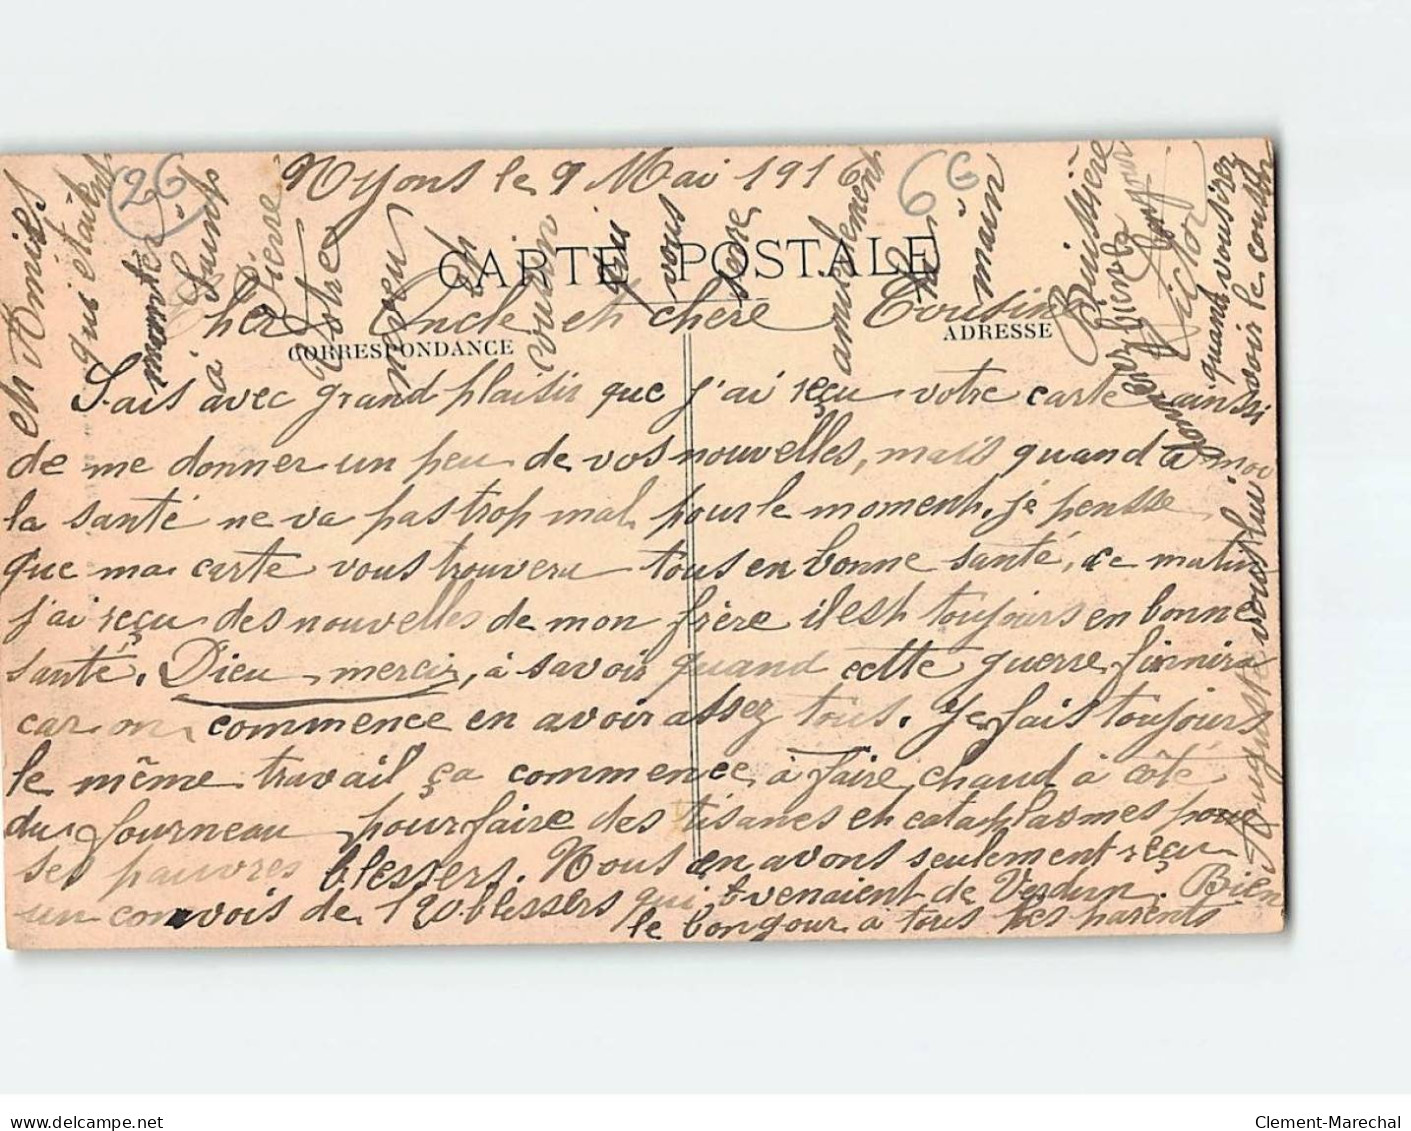 Nyons le 9 Mai 1916
CARTE POSTALE
CORRESPONDANCE
ADRESSE
Cher Oncle et chère Cousine
Sait avec grand plaisir que j'ai reçu votre carte ainsi
de me donner un peu de vos nouvelles, mais quand à moi
la santé ne va pas trop mal pour le moment. je pensse
que ma carte vous trouvera tous en bonne santé, ce matin
j'ai reçu des nouvelles de mon frère il est toujours en bonne
santé. Dieu mercis, à savoir quand cette guerre finnira
car on commence en avoir assez tous. Je fais toujours
le même travail ça commence à faire chaud à côté
du fourneau pour faire des tisanes et cataplasmes pour
ses pauvres blessers. Nous en avons seulement reçu
un convois de 120 blessers qui venaient de Verdun. Bien
le bonjour à tous les parents
et Amies
qui étaient
monter
à Saint
Pierre
Votre
neveu
et
cousin
qui
vous
aime
amicalement
la
main
Buissière
Victor
quand vousirez
voir le cousin
Auguste vous lui
donnerez bien le bonjour
26
66
Clement-Marechal
www.delcampe.net